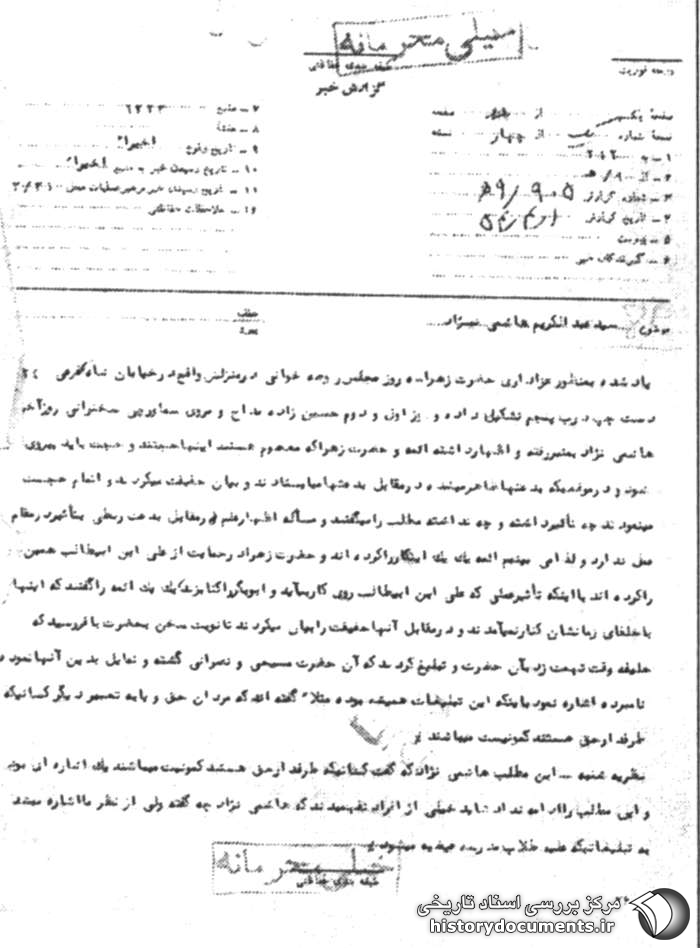 خیلی محرمانه
طبقه بندی حفاظتی
درجه فوریت
گزارش خبر
صفحه یکم از صفحه
نسخه شماره از چهار نسخه
۱ ــ به ۳۰۲
۲ ــ از ۹۰۰/ هـ
۳ ــ شماره گزارش
۴ ــ تاریخ گزارش
۵ ــ پیوست
۶ ــ گیرندگان خبر
۷ ــ منبع ۶۲۲۳
۸ ــ منشأ
۹ ــ تاریخ وقوع اخیرا"
۱۰ ــ تاریخ رسیدن خبر به منبع اخیرا"
۱۱ ــ تاریخ رسیدن خبر برهبر عملیات محل
۱۲ ــ ملاحظات حفاظتی
موضوع سید عبدالکریم هاشمی نژاد
عطف
یاد شده بمنظور عزاداری حضرت زهرا سه روز مجلس روضه خوانی در منزلش واقع در خیابان
دست چپ درب پنجم تشکیل داده و روز اول و دوم حسین زاده مداح و مروی سماورچی سخنرانی روز آخر
هاشمی نژاد بمنبر رفته و اظهار داشته ائمه و حضرت زهرا که معصوم هستند اینها حجتند و حجت باید پیروی
نمود و در موقعیکه بدعتها ظاهر میشده در مقابل بدعتها میایستادند و بیان حقیقت میکردند و اتمام حجت
مینمودند چه تأثیر داشته و چه نداشته مطلب را میگفتند و مسأله اظهار علم در مقابل بدعت ربطی بتأثیر در مقام
عمل ندارد و لذا می بینیم ائمه یک یک اینکار را کرده اند و حضرت زهرا در حمایت از علی ابن ابیطالب همین
را کرده اند با اینکه تأثیر عملی که علی ابن ابیطالب روی کار بیاید و ابوبکر را کنار بزند یک یک ائمه را گفتند که اینها
با خلفای زمانشان کنار نمیآمدند و در مقابل آنها حقیقت را بیان میکردند تا نوبت سخن بحضرت باقر رسید که
خلیفه وقت تهمت زد بآن حضرت و تبلیغ کردند که آن حضرت مسیحی و نصرانی گشته و تمایل بدین آنها نموده
نامبرده اشاره نمود باینکه این تبلیغات همیشه بوده مثلا" گفته اند که مردان حق و یا به تعبیر دیگر کسانیکه
طرفدار حق هستند کمونیست میباشند
نظریه شنبه ــ این مطلب هاشمی نژاد که گفت کسانیکه طرفدار حق هستند کمونیست میباشند یک اشاره ای بود
و این مطالب را ادامه نداد شاید خیلی از افراد نفهمیدند که هاشمی نژاد چه گفته ولی از نظر ما اشاره
به تبلیغاتیکه علیه طلاب مدرسه فیضیه میشود
خیلی محرمانه
طبقه بندی حفاظتی
مرکز بررسی اسناد تاریخی
historydocuments.ir